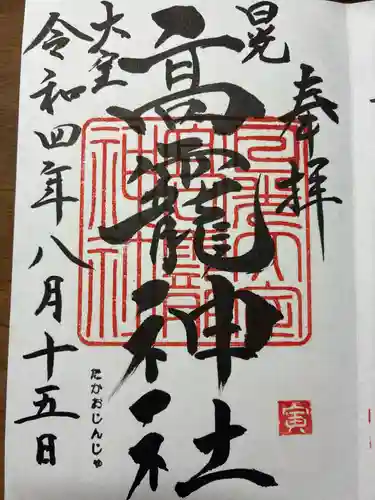 奉拝
日光
高龗神社
大室
令和四年八月十五日
たかおじんじゃ
寅